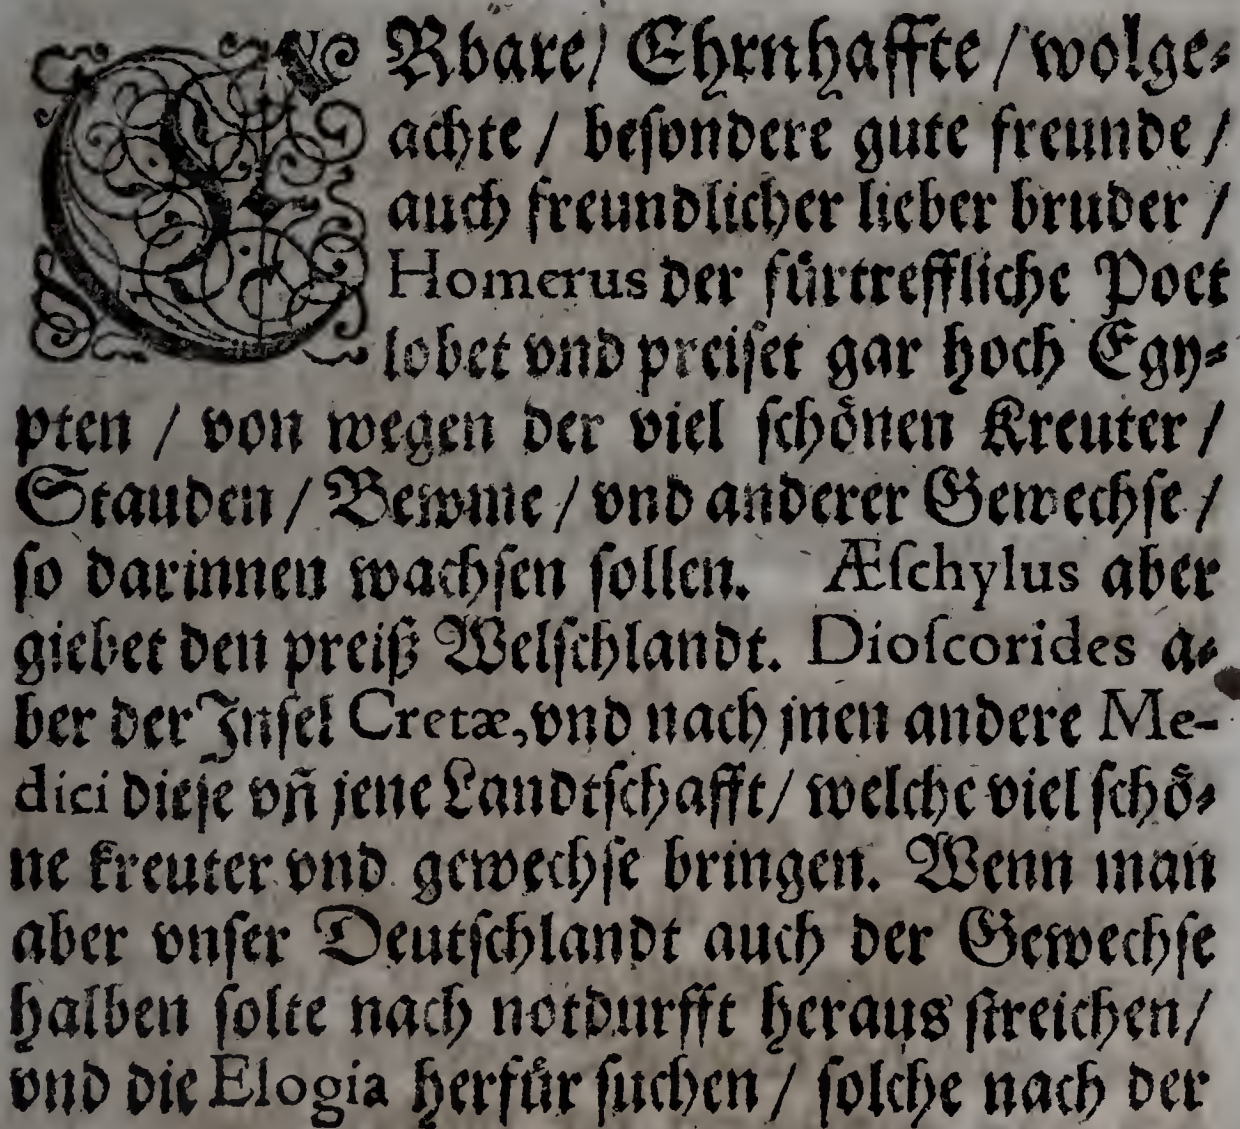 ERbare/ Ehrnhaffte / wolge⸗
achte / beſondere gute freunde /
auch freundlicher lieber bruder /
Homerus der fuͤrtreffliche Poet
lobet vnd preiſet gar hoch Egy⸗
pten / von wegen der viel ſchoͤnen Kreuter /
Stauden / Bewme / vnd anderer Gewechſe /
ſo darinnen wachſen ſollen. Æſchylus aber
giebet den preiß Welſchlandt. Dioſcorides a⸗
ber der Jnſel Cretæ, vnd nach jnen andere Me-
dici dieſe vñ jene Landtſchafft / welche viel ſchoͤ⸗
ne kreuter vnd gewechſe bringen. Wenn man
aber vnſer Deutſchlandt auch der Gewechſe
halben ſolte nach notdurfft heraus ſtreichen /
vnd die Elogia herfuͤr ſuchen / ſolche nach der